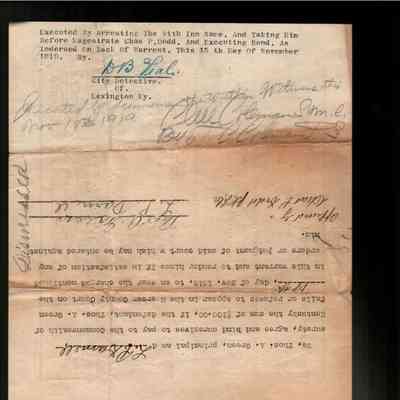 Executed By Arresting The With Inn Name, And Taking Him
Before Magestrate Chas P,Dodd, And Executing Bond, As
Indorsed On Back Of Warrent, This 15 th Day Of November
1919. By.
City Detective.
Of.
Lexington Ky.
Executed by summoning the within Witnesses
Nov 18th 1919
Dismissed
We, Thos. J. Green, as principal and L P Darnell
surety, agree and bind ourselves to pay to the Commonwealth of
Kentucky the sum of $100.00, if the defendant, Thos. J. Green
fails or refuses to appear in the County Court on the
18th day of Nov. 1919, to answer the charges mentioned
in this warrant and to render himself in satisfaction of any
orders or judgment of said court which may be entered against
him.
L P Darnell
Approved by